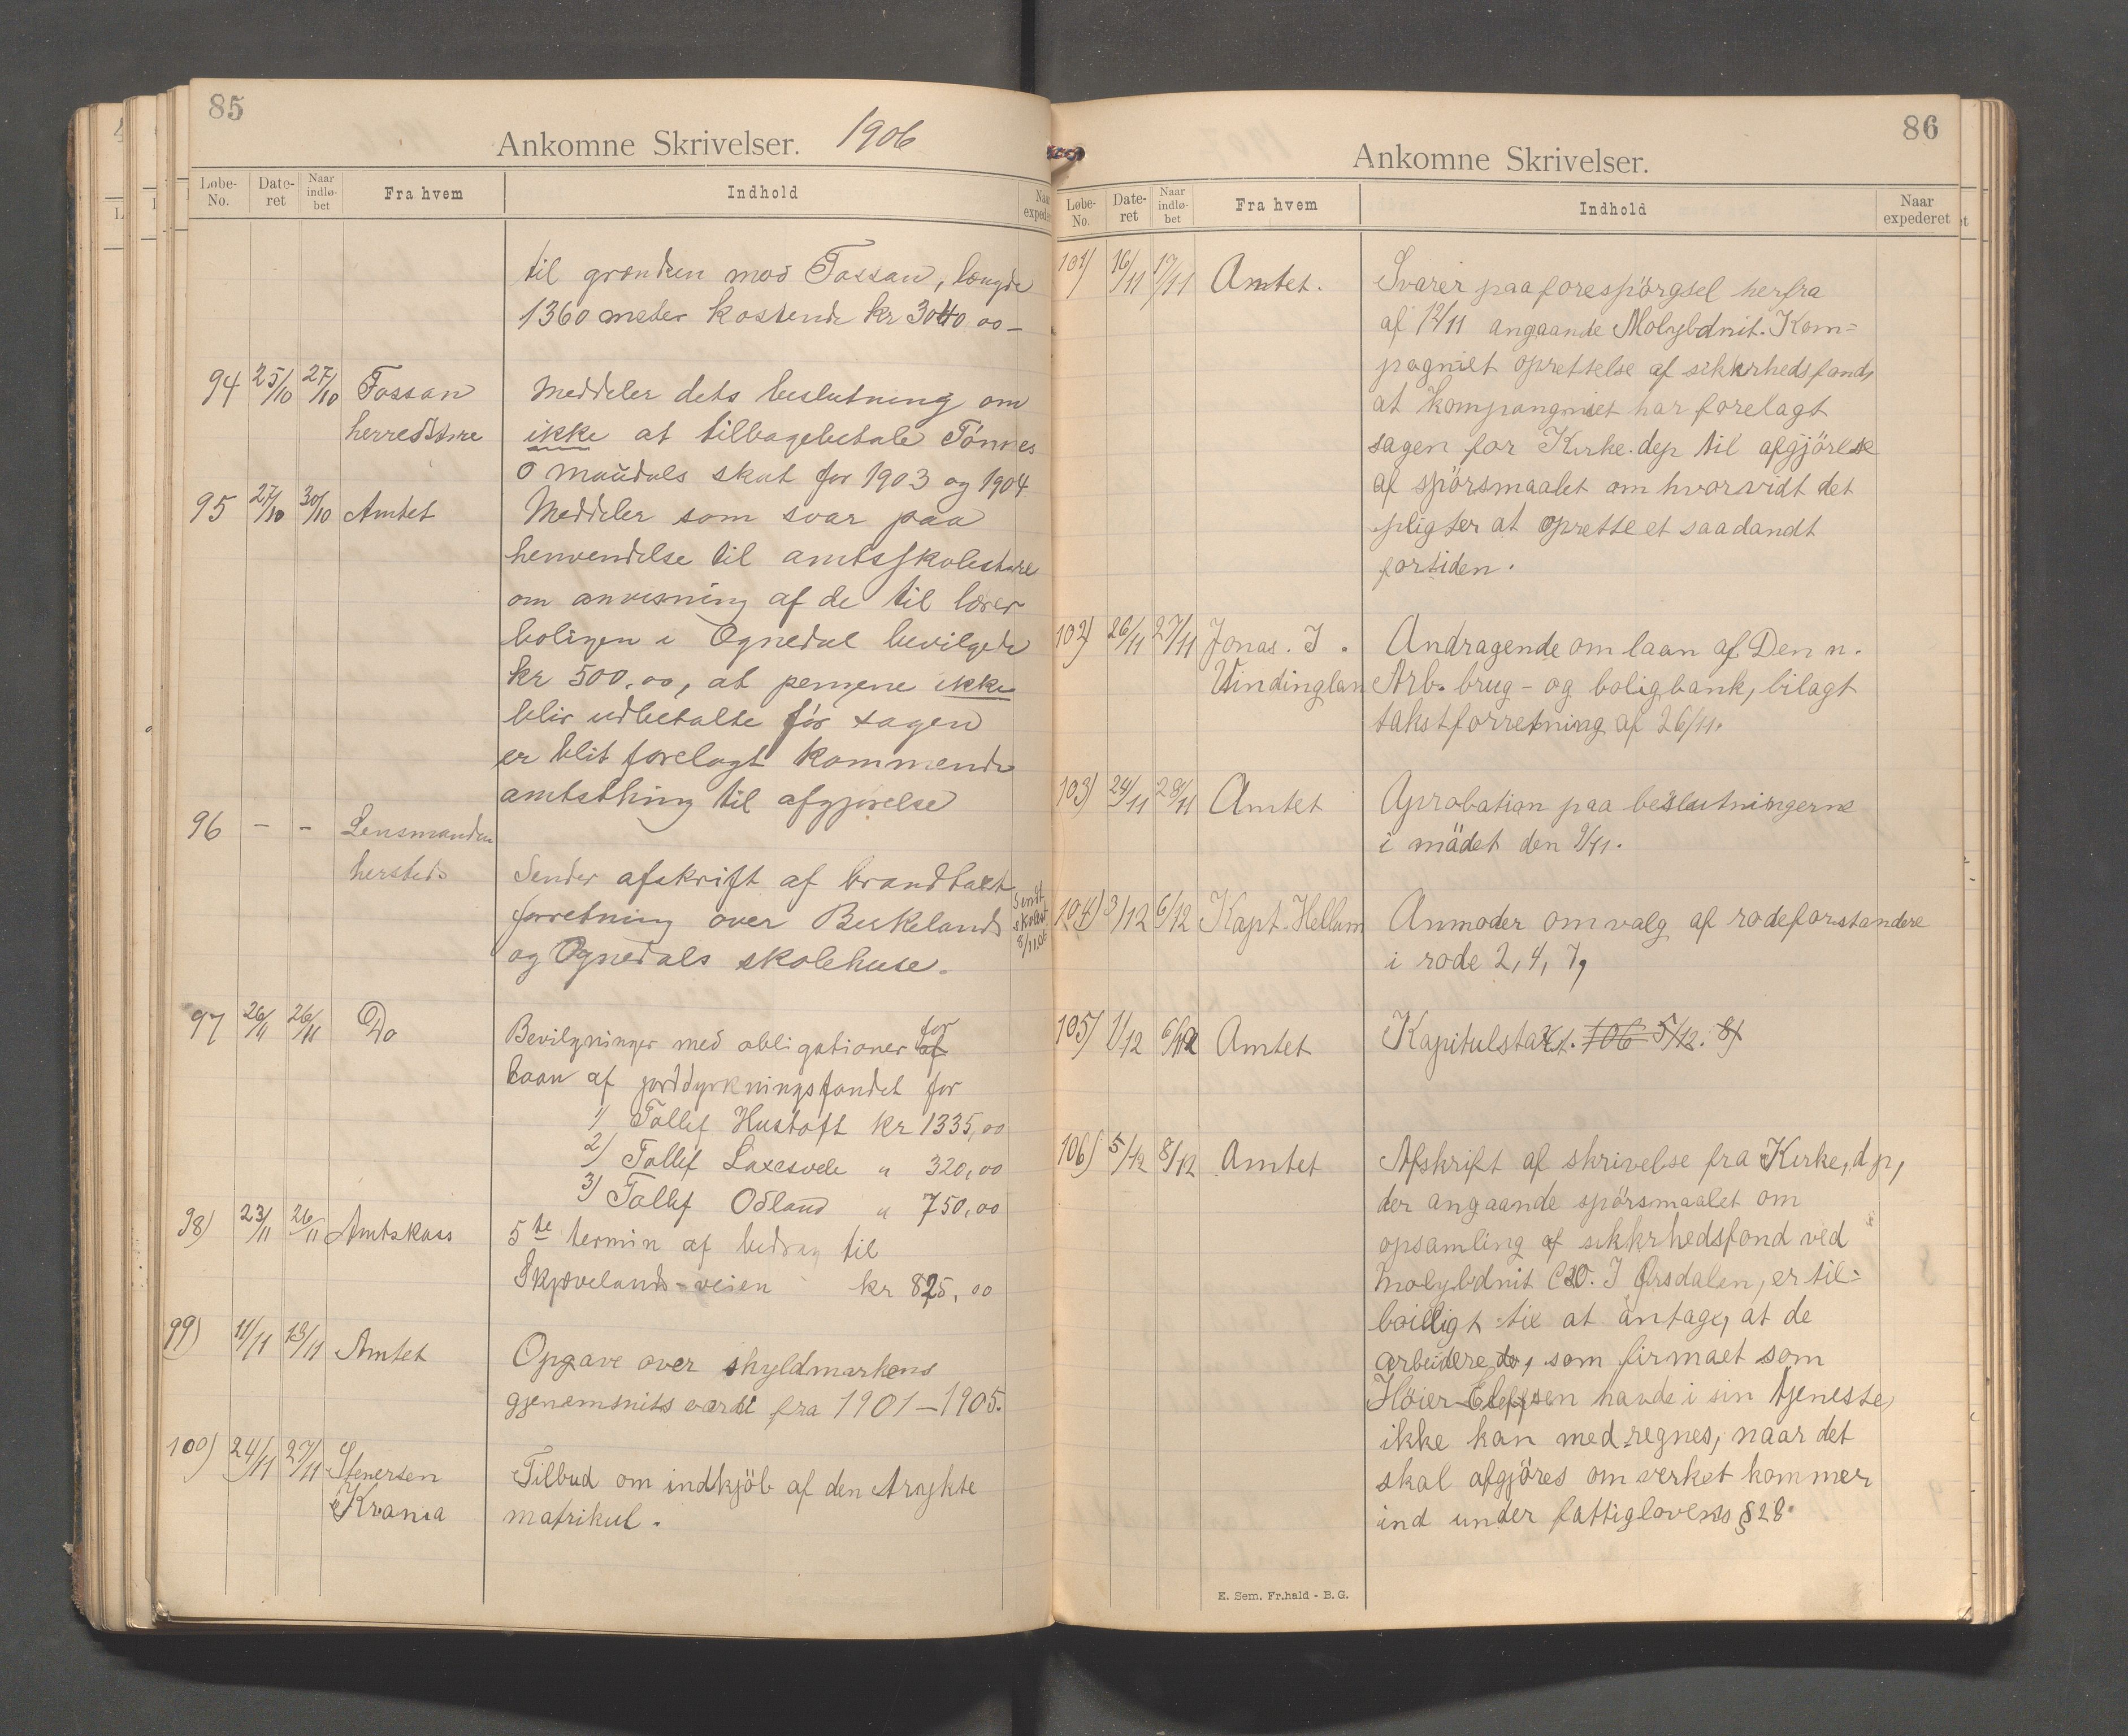 85
Ankomne Skrivelser. 1906
Løbe-No. Date-ret Naar indlø-bet Fra hvem Indhold Naar expede
til grændsen mod Fossan, længde
1360 meter kostende kr 3040.00 –
94 25/10 27/10 Fossan Meddeler dets beslutning om
herredstyre ikke at tilbagebetale Tönnes
O Maudals skat for 1903 og 1904
95 27/10 30/10 Amtet Meddeler som svar paa
henvendelse til amtsskolestyre
om anvisning af de til lærer
boligen i Ognedal bevilgede
kr 500,00, at pengene ikke
blir udbetalte før sagen
er blit forelagt kommende
amtsthing til afgjørelse
96 – – Lensmanden
hersteds Sender afskrift af brandtaxt
forretning over Birkelands
og Ognedals skolehuse.
Sendt skolest 8/11.06
97 26/11 26/11 Do Bevilgninger med obligationer af for
Laan af jorddyrkningsfondet for
1) Tollef Hustoft kr 1335,00
2) Tollef Laxesvele " 320,00
3) Tollef Odland " 750,00
98) 23/11 26/11 Amtskass 5te termin af bidrag til
Skjævelands-veien kr 825,00
99) 11/11 13/11 Amtet Opgave over skyldmarkens
gjenemsnits værdi fra 1901–1905.
100) 24/11 27/11 Stenersen Tilbud om indkjöb af den trykte
Krania matrikul.
86
Ankomne Skrivelser.
Løbe-No. Date-ret Naar indlø-bet Fra hvem Indhold Naar expederet
101) 16/11 17/11 Amtet. Svarer paa forespörgsel herfra
af 12/11 angaande Molybdnit. Kom-
pagniet oprettelse af sikkrhedsfond,
at kompangniet har forelagt
sagen for Kirke.dep til afgjörelse
af spörsmaalet om hvorvidt det
pligter at oprette et saadandt
fortiden.
102) 26/11 27/11 Jonas. I. Andragende om laan af Den n.
Vindinglan Arb. brug- og boligbank, bilagt
takstforretning af 26/11.
103) 24/11 28/11 Amtet Aprobation paa beslutningerne
i mödet den 9/11.
104) 3/12 6/12 Kapt. Hellum Anmoder om valg af rodeforstandere
i rode 2, 4, 7,
105) 1/12 6/12 Amtet Kapitulstaxt. 106 5/12. 8/
106) 5/12 8/12 Amtet Afskrift af skrivelse fra Kirke,dp,
der angaande spörsmaalet om
opsamling af sikkrhedsfond ved
Molybdnit CO. I Örsdalen, er til-
böiligt til at antage, at de
arbeidere, de, som firmaet som
Höier-Ellefsen havde i sin tjeneste,
ikke kan medregnes, naar det
skal afgjöres om verket kommer
ind under fattiglovens §28.
E. Sem. Fr.hald - B. G.